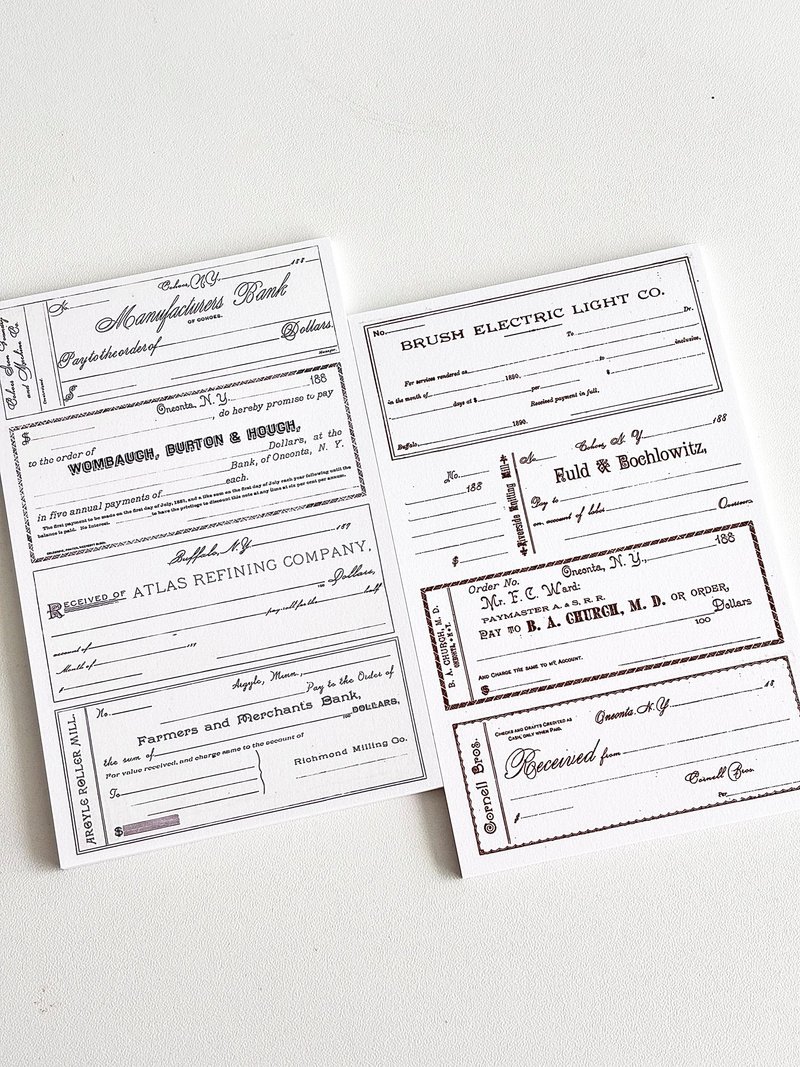 Cohoes, N.Y. 188
No.
Manufacturers Bank
OF COHOES.
Pay to the order of
Dollars.
$
Oneonta, N. Y. 188
$
, do hereby promise to pay
to the order of WOMBAUGH, BURTON & HOUGH,
Dollars, at the
Bank, of Oneonta, N. Y.
in five annual payments of each.
The first payment to be made on the first day of July, 1881, and a like sum on the first day of July each year following until the
balance is paid. No Interest. to have the privilege to discount this note at any time at six per cent per annum.
Buffalo, N.Y. 187
RECEIVED OF ATLAS REFINING COMPANY,
100 Dollars,
pay-roll for the half
account of
Month of 187
$
ARGYLE ROLLER MILL.
No. Argyle, Minn.,
Pay to the Order of
Farmers and Merchants Bank,
the sum of 100 DOLLARS,
For value received, and charge same to the account of
To
Richmond Milling Co.
$
No.
BRUSH ELECTRIC LIGHT CO.
To Dr.
For services rendered as 1890, to inclusive,
in the month of days at $ per $
Received payment in full,
Buffalo, 1890.
No.
188
$
Riverside Knitting Mill
No. Cohoes, N. Y. 188
Fuld & Bochlowitz,
Pay to
on account of labor. Overseer.
B. A. CHURCH, M. D.
ONEONTA, N. Y.
Order No. Oneonta, N. Y., 188
Mr. F. C. Ward:
PAYMASTER A. & S. R. R.
PAY TO B. A. CHURCH, M. D. OR ORDER,
100 Dollars
AND CHARGE THE SAME TO MY ACCOUNT.
$
Cornell Bros.
CHECKS AND DRAFTS CREDITED AS
CASH, ONLY WHEN PAID.
Oneonta, N.Y. 18
Received from
Cornell Bros.
$
Per